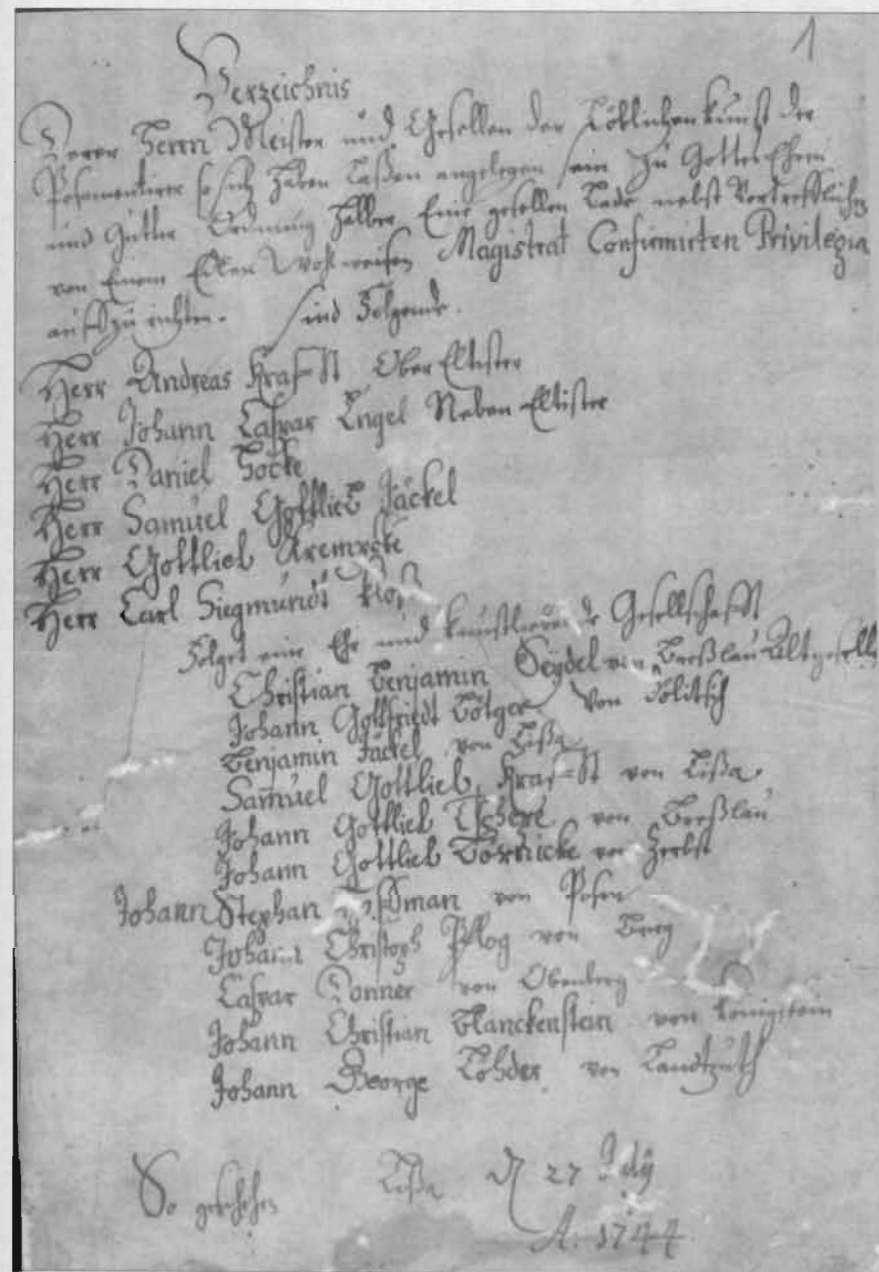 1
Verzeichnis
Derer Herrn Meister und Gesellen der Löblichen Kunst der
Posamentirer so sich haben laßen angelegen sein zu Gottes Ehren
und gutter Ordnung halber Eine gesellen Lade nebst Vortrefflichen
von Einem Edlen Wohlweisen Magistrat Confirmirten Privilegia
auffzurichten. sind Folgende.
Herr Andreas Krafft Ober Eltister
Herr Johann Caspar Engel Neben Eltister
Herr Daniel
Herr Samuel Gottlieb Jäckel
Herr Gottlieb
Herr Carl Siegmundt
Folget eine Ehr und Gesellschafft
Christian Benjamin Seydel von Breßlau Altgesell
Johann Gottfriedt Bötger von
Benjamin Jäckel von Lißa
Samuel Gottlieb Krafft von Lißa
Johann Gottlieb von Breßlau
Johann Gottlieb von Zerbst
Johann Stephan von Posen
Johann Christoph Pflog von Brieg
Caspar Donner von
Johann Christian Blanckenstein von Königstein
Johann George Lohder von Landtshutt
So geschehen Lißa d 27 July
A. 1744